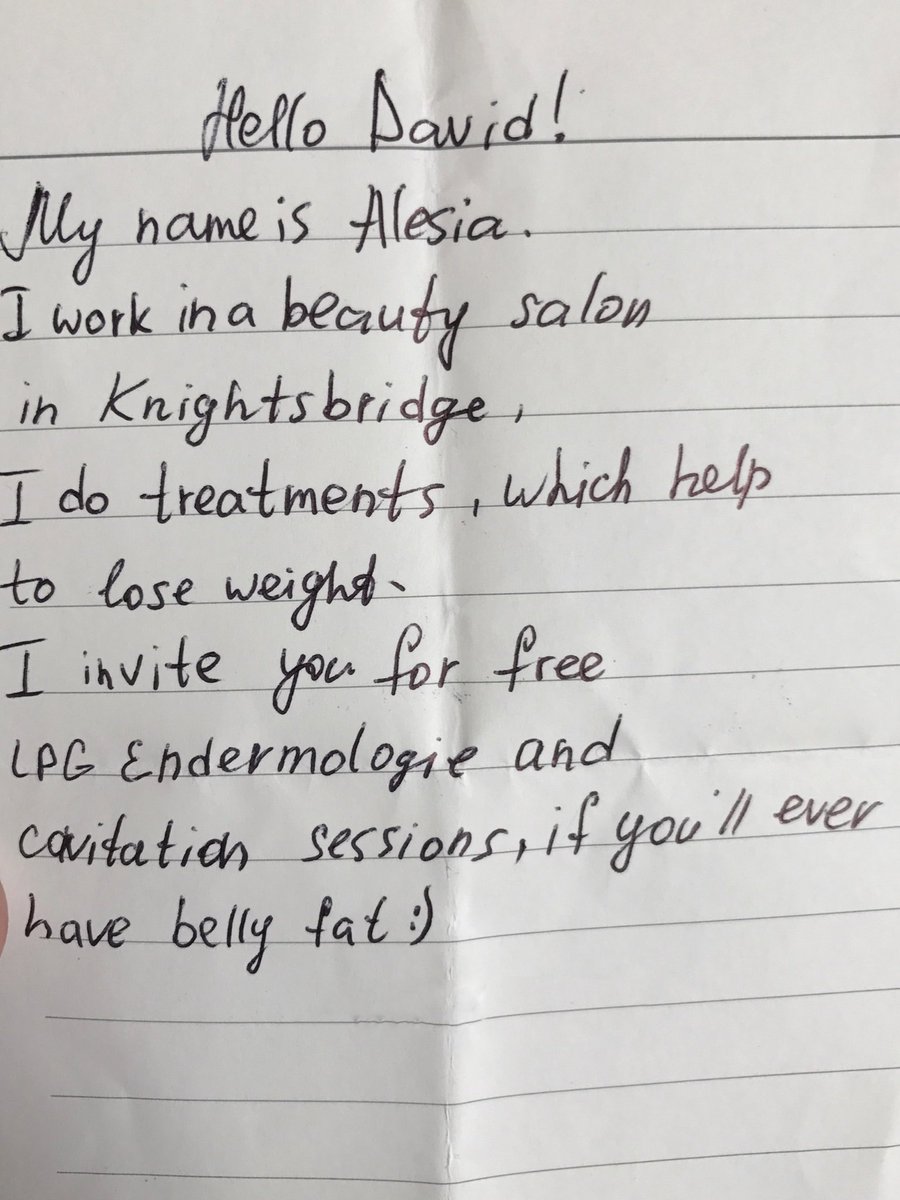 Hello David!
My name is Alesia.
I work in a beauty salon
in Knightsbridge,
I do treatments, which help
to lose weight.
I invite you for free
LPG Endermologie and
cavitation sessions, if you'll ever
have belly fat :)